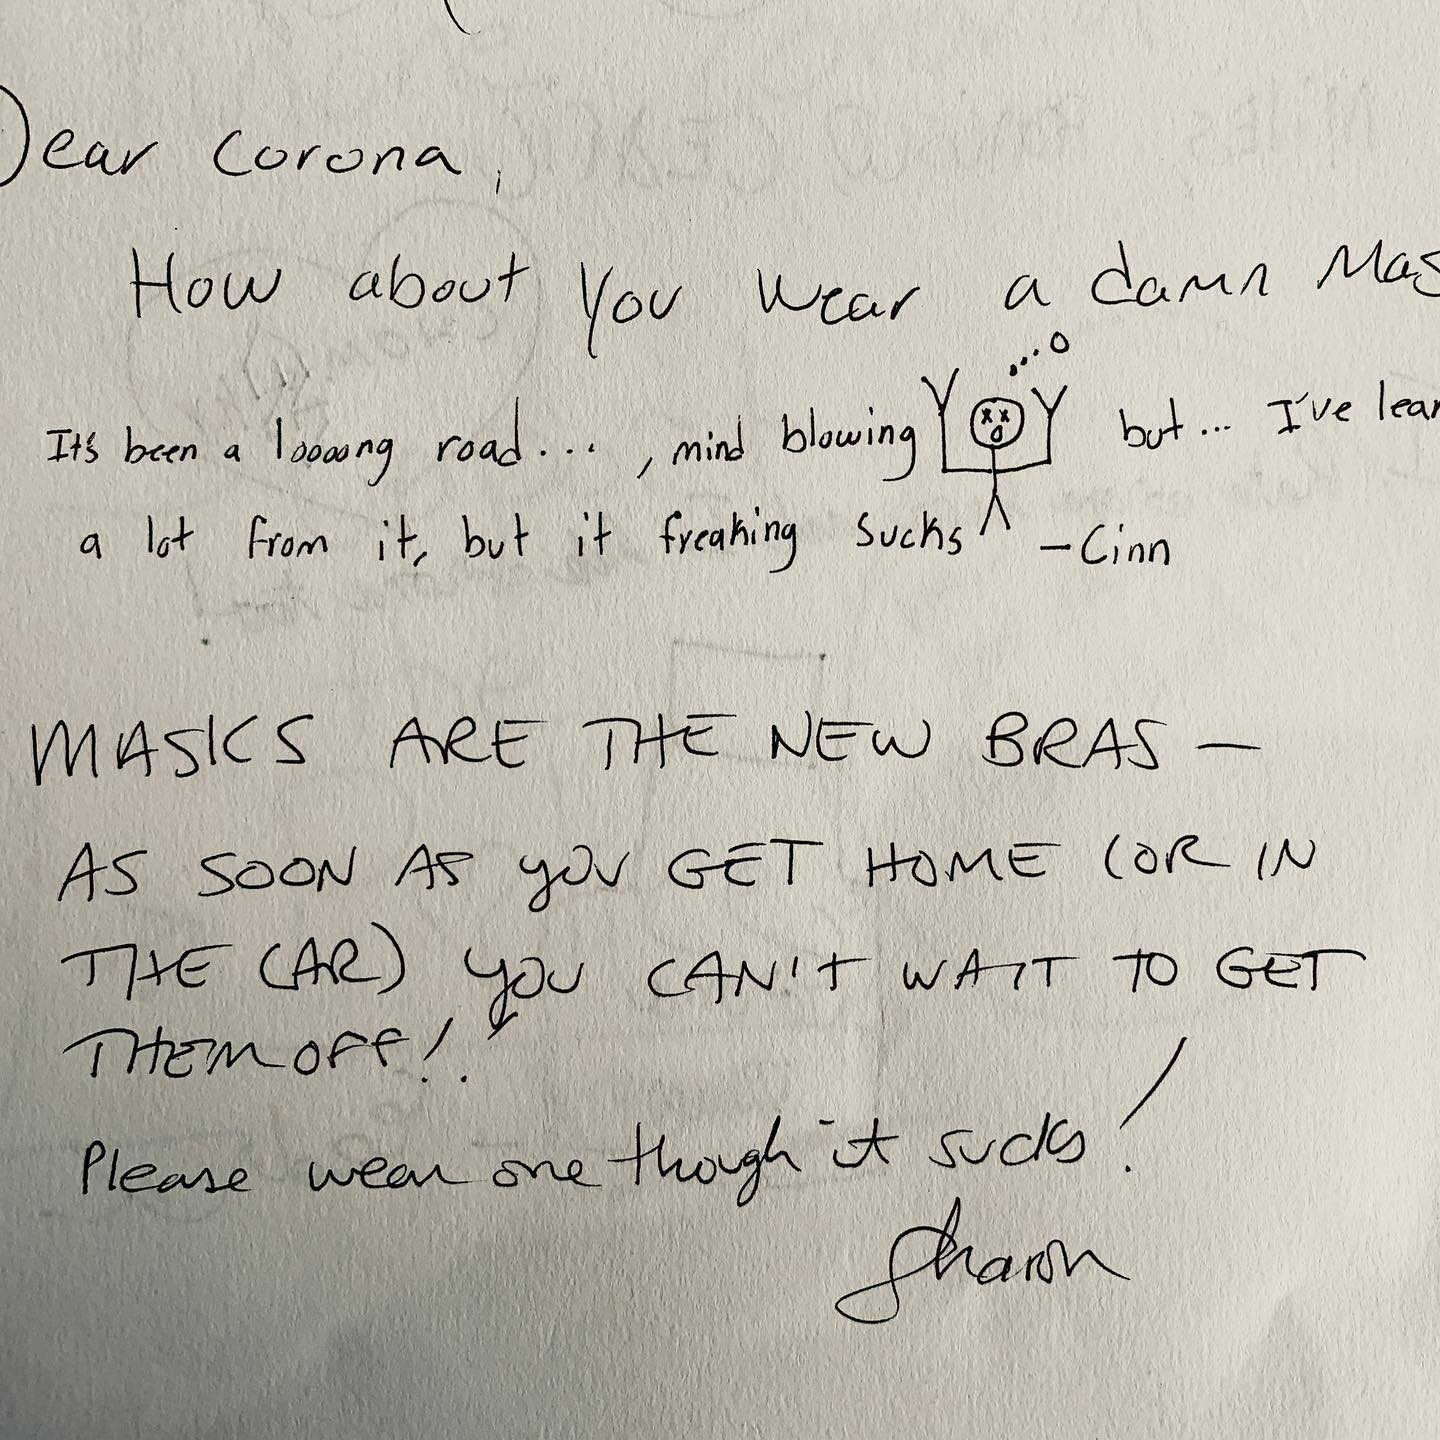 Dear Corona,
How about You wear a damn Mas
It's been a loooong road... , mind blowing but... I've lear
a lot from it, but it freaking sucks -Cinn
MASKS ARE THE NEW BRAS —
AS SOON AS YOU GET HOME (OR IN
THE CAR) YOU CAN'T WAIT TO GET
THEM OFF!!
Please wear one though it sucks!
Sharon